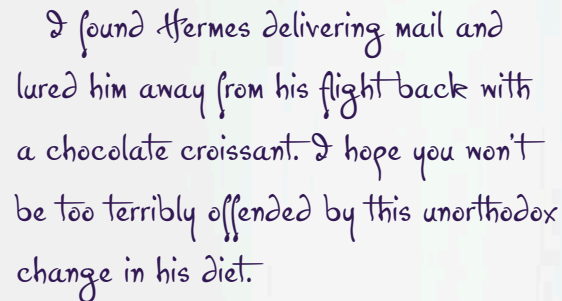 I found Hermes delivering mail and
lured him away from his flight back with
a chocolate croissant. I hope you won't
be too terribly offended by this unorthodox
change in his diet.